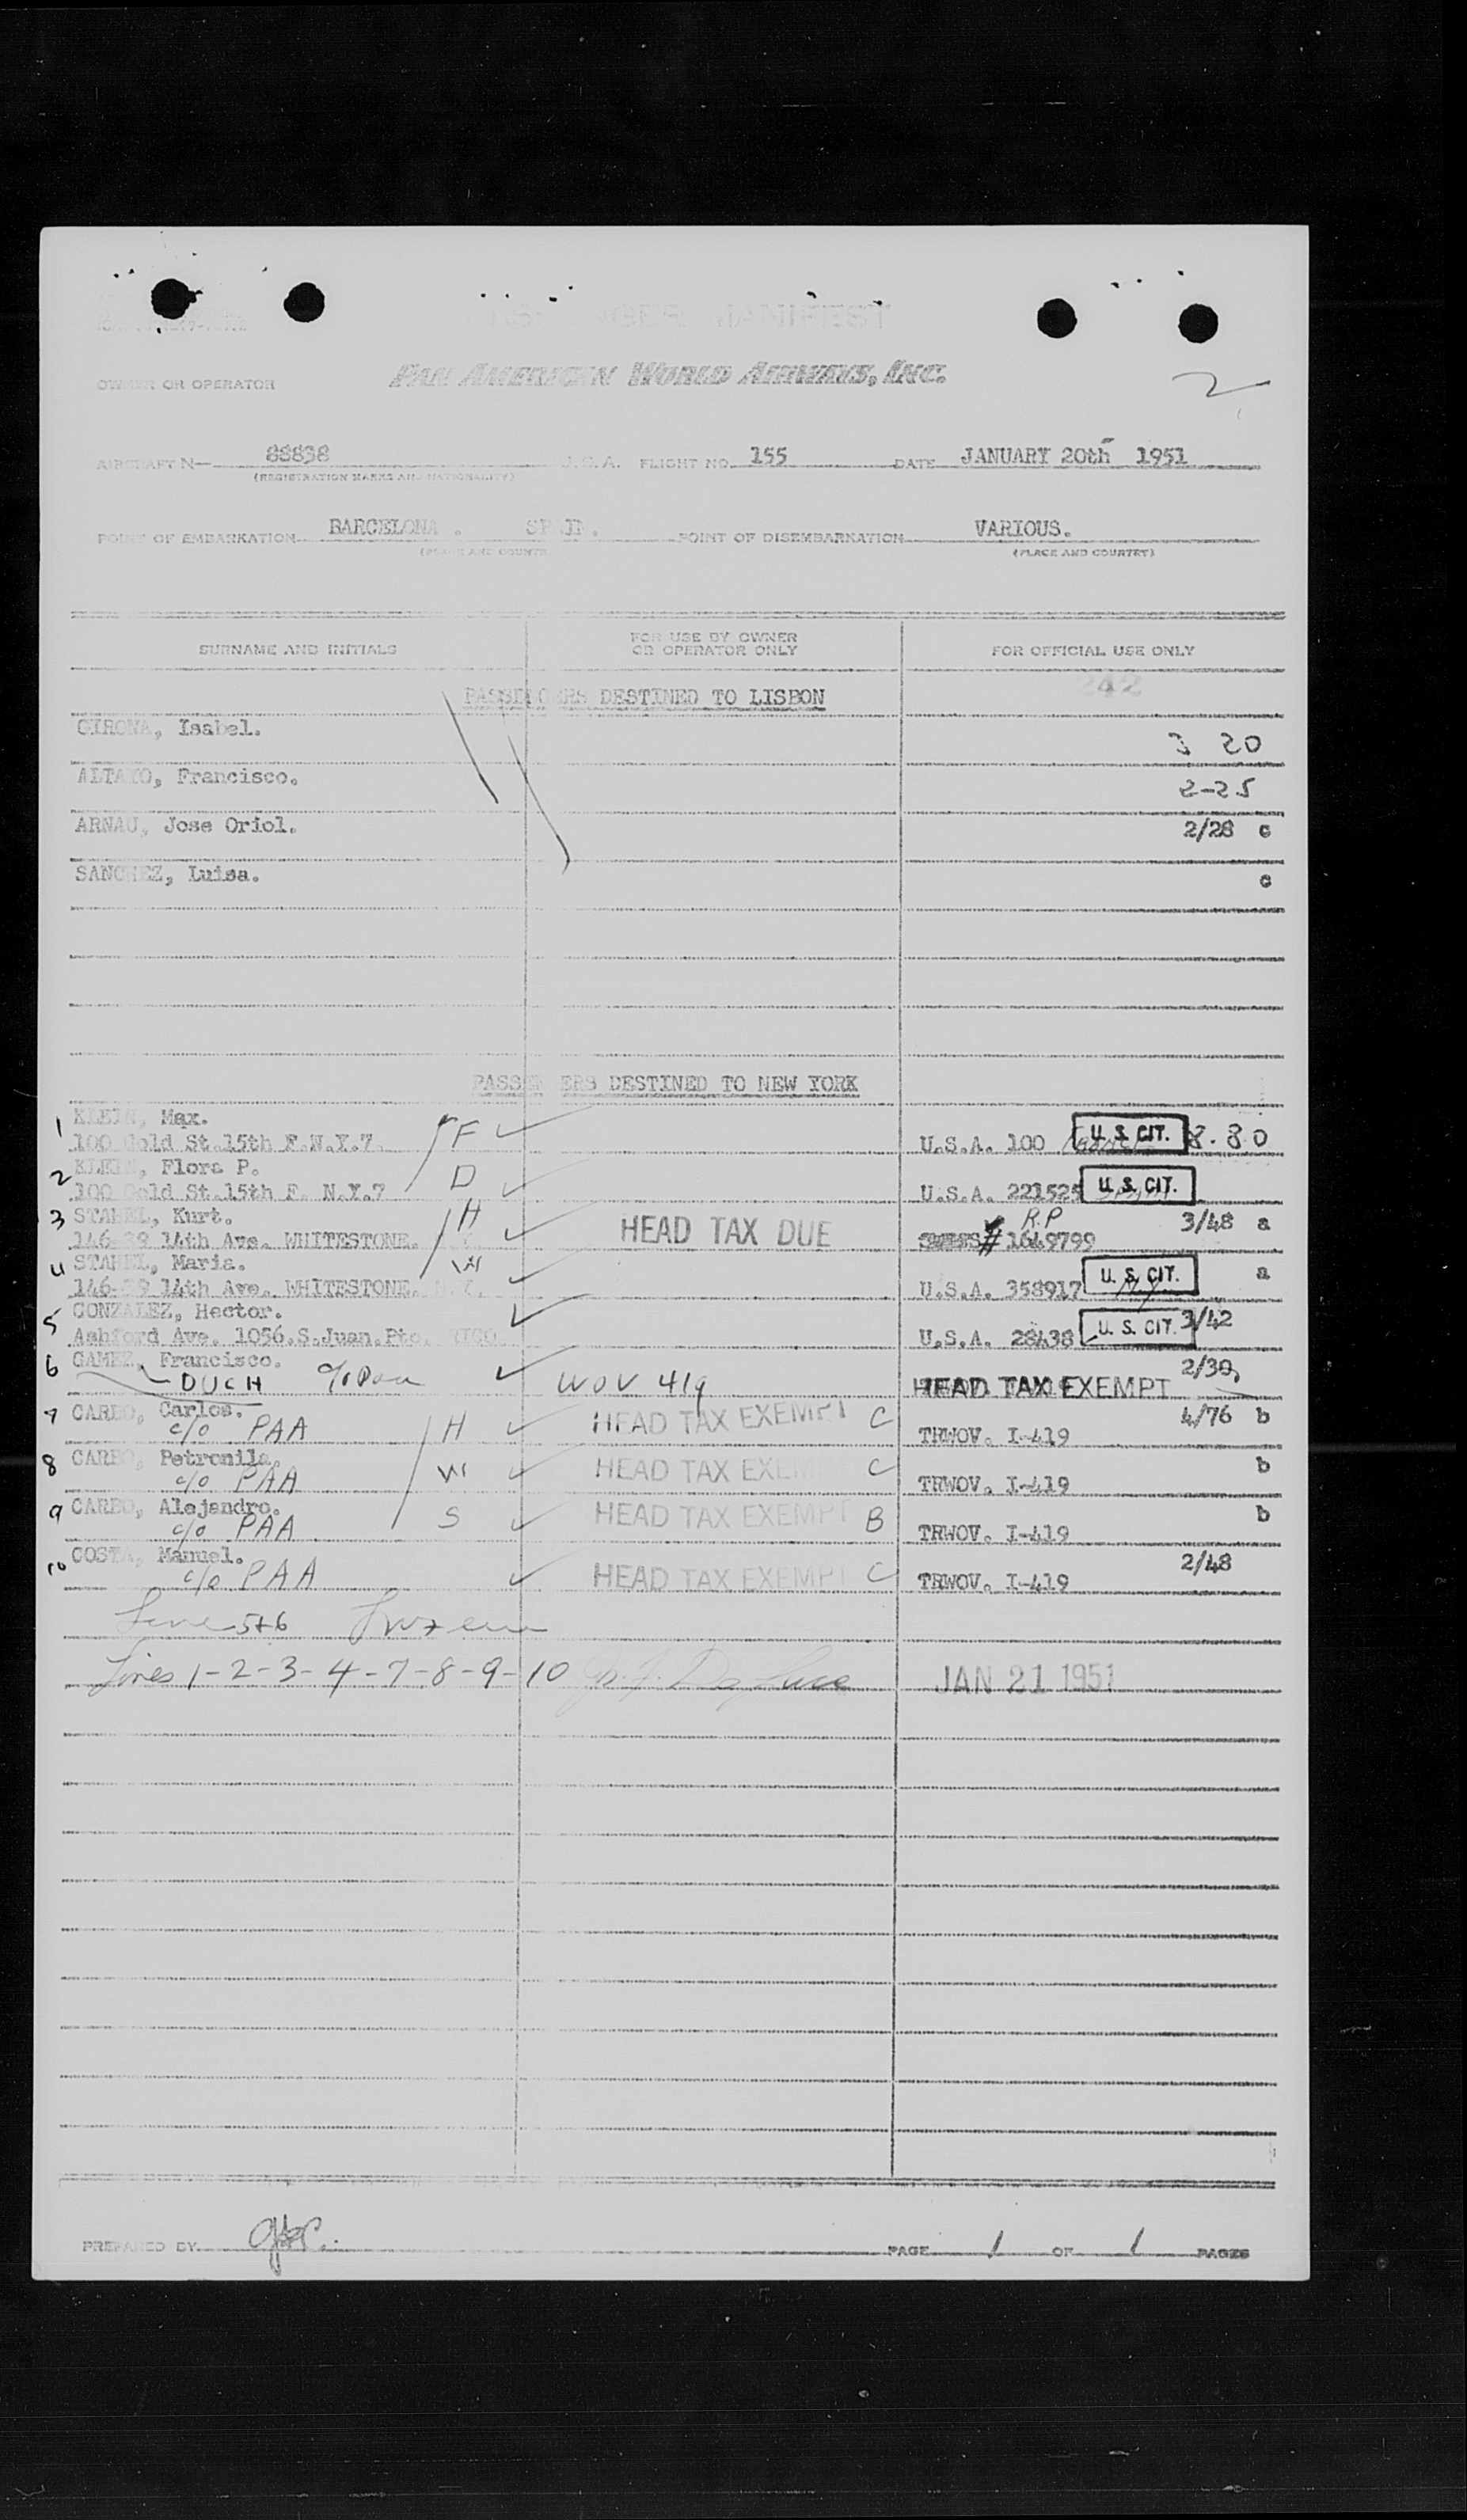 PASSENGER MANIFEST
OWNER OR OPERATOR PAN AMERICAN WORLD AIRWAYS, INC.
2
AIRCRAFT N— 88838 U.S.A. FLIGHT NO. 155 DATE JANUARY 20th 1951
(REGISTRATION MARKS AND NATIONALITY)
POINT OF EMBARKATION BARCELONA . SPAIN. POINT OF DISEMBARKATION VARIOUS.
(PLACE AND COUNTRY) (PLACE AND COUNTRY)
SURNAME AND INITIALS FOR USE BY OWNER OR OPERATOR ONLY FOR OFFICIAL USE ONLY
242
PASSENGERS DESTINED TO LISBON
GIRONA, Isabel. 3 20
ALTAYO, Francisco. 2-25
ARNAU, Jose Oriol. 2/28 c
SANCHEZ, Luisa. c
PASSENGERS DESTINED TO NEW YORK
1 KLEIN, Max. F
100 Gold St.15th F.N.Y.7. U.S.A. 100 U. S. CIT. 8.80
2 KLEIN, Flora P. D
100 Gold St.15th F. N.Y.7 U.S.A. 221525 U. S. CIT.
3 STAHEL, Kurt. H R.P 3/48 a
146-39 14th Ave. WHITESTONE. HEAD TAX DUE # 1649799
4 STAHEL, Maria. W a
146-39 14th Ave. WHITESTONE. N.Y. U.S.A. 358917 U. S. CIT. N.Y.
5 GONZALEZ, Hector. 3/42
Ashford Ave. 1056.S.Juan.Pto. RICO. U.S.A. 28438 U. S. CIT.
6 GAMEZ, Francisco. 2/30
DUCH c/o Paa WOV 419 HEAD TAX EXEMPT
7 CARBO, Carlos. 4/76 b
c/o PAA H HEAD TAX EXEMPT C TRWOV. I-419
8 CARBO, Petronila. b
c/o PAA W HEAD TAX EXEMPT C TRWOV. I-419
9 CARBO, Alejandro. b
c/o PAA S HEAD TAX EXEMPT B TRWOV. I-419
10 COSTA, Manuel. 2/48
c/o PAA HEAD TAX EXEMPT C TRWOV. I-419
5+6
Lines 1-2-3-4-7-8-9-10 JAN 21 1951
PREPARED BY PAGE 1 OF 1 PAGES